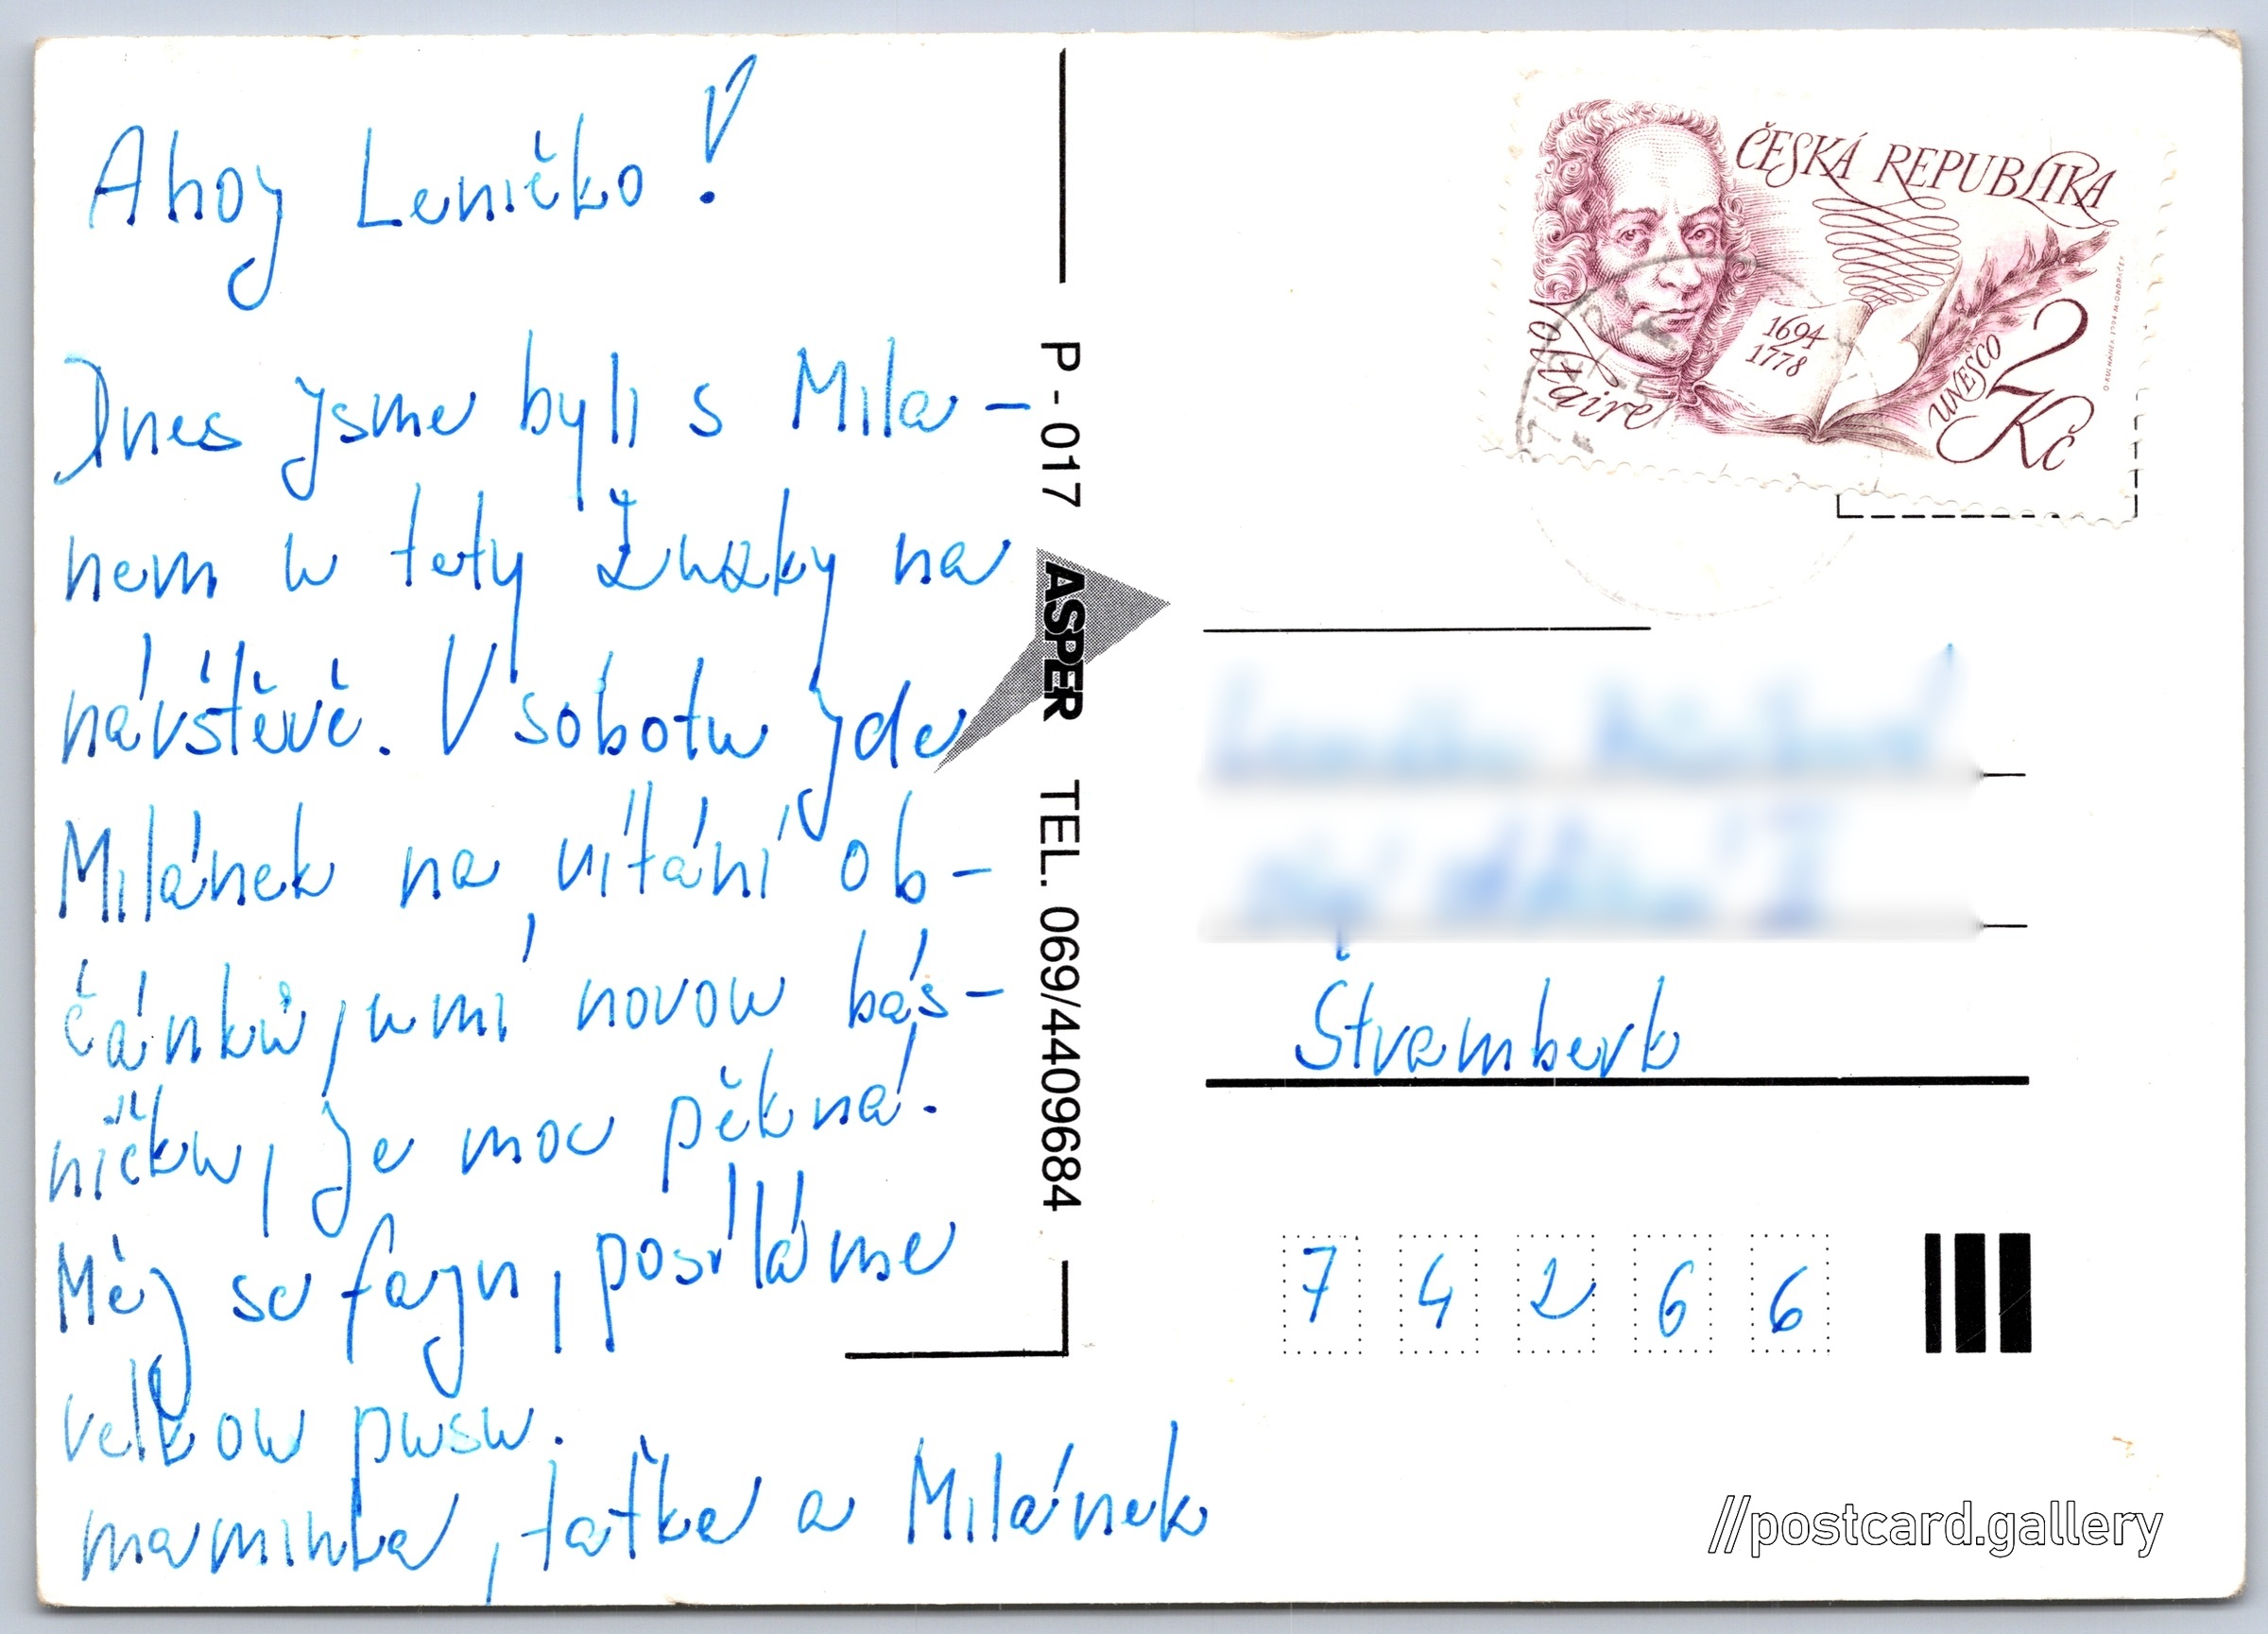 Ahoj Leničko!
Dnes jsme byli s Mila-
nem u tety Zuzky na
návštěvě. V sobotu jde
Milánek na vítání ob-
čánků, umí novou bás-
ničku, je moc pěkná.
Měj se fajn, posíláme
velkou pusu.
maminka, taťka a Milánek
P - 017 ASPER TEL. 069/4409684
ČESKÁ REPUBLIKA
Voltaire
1694
1778
UNESCO
2 Kč
Štramberk
7 4 2 6 6
//postcard.gallery